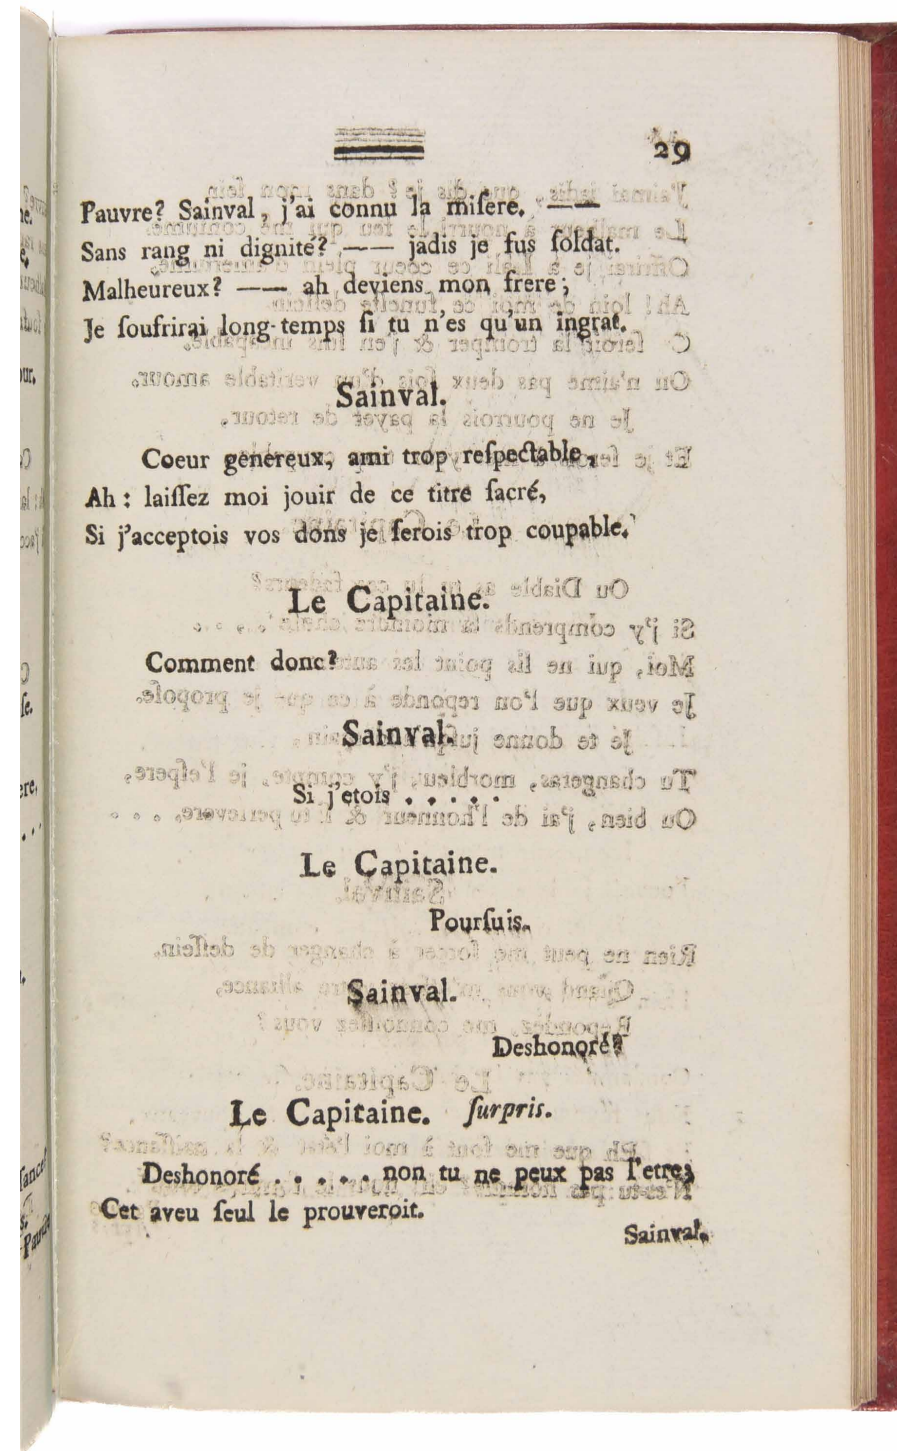 29
Pauvre? Sainval, j'ai connu la miſere. ——
Sans rang ni dignité? —— jadis je fus ſoldat.
Malheureux? —— ah deviens mon frere;
Je ſoufrirai long-temps ſi tu n'es qu'un ingrat.
Sainval.
Coeur généreux, ami trop reſpectable,
Ah: laiſſez moi jouir de ce titre ſacré,
Si j'acceptois vos dons je ſerois trop coupable.
Le Capitaine.
Comment donc?
Sainval.
Si j'etois . . . . .
Le Capitaine.
Pourſuis.
Sainval.
Deshonoré?
Le Capitaine. ſurpris.
Deshonoré . . . . . non tu ne peux pas l'etre;
Cet aveu ſeul le prouveroit.
Sainval.